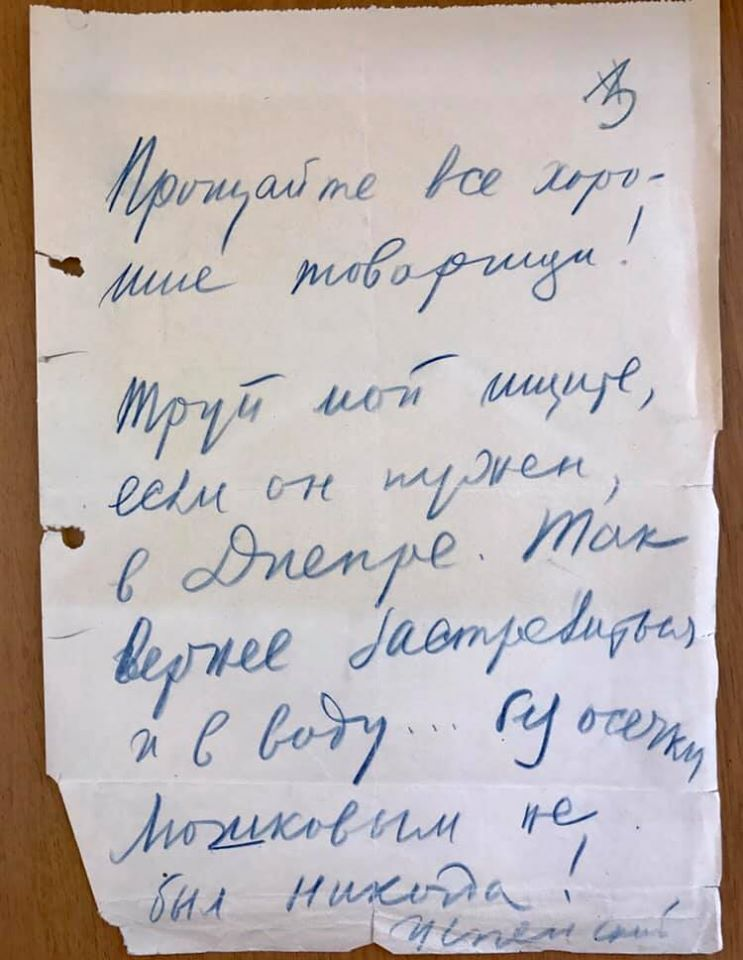 Прощайте все хоро-
шие товарищи!
Труп мой ищите,
если он нужен,
в Днепре. Так
вернее застрелиться
и в воду... без осечки
Лошковым не
был никогда!
Успенский